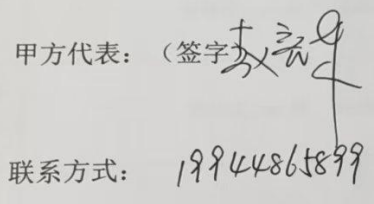 甲方代表：（签字）
联系方式：19944865899